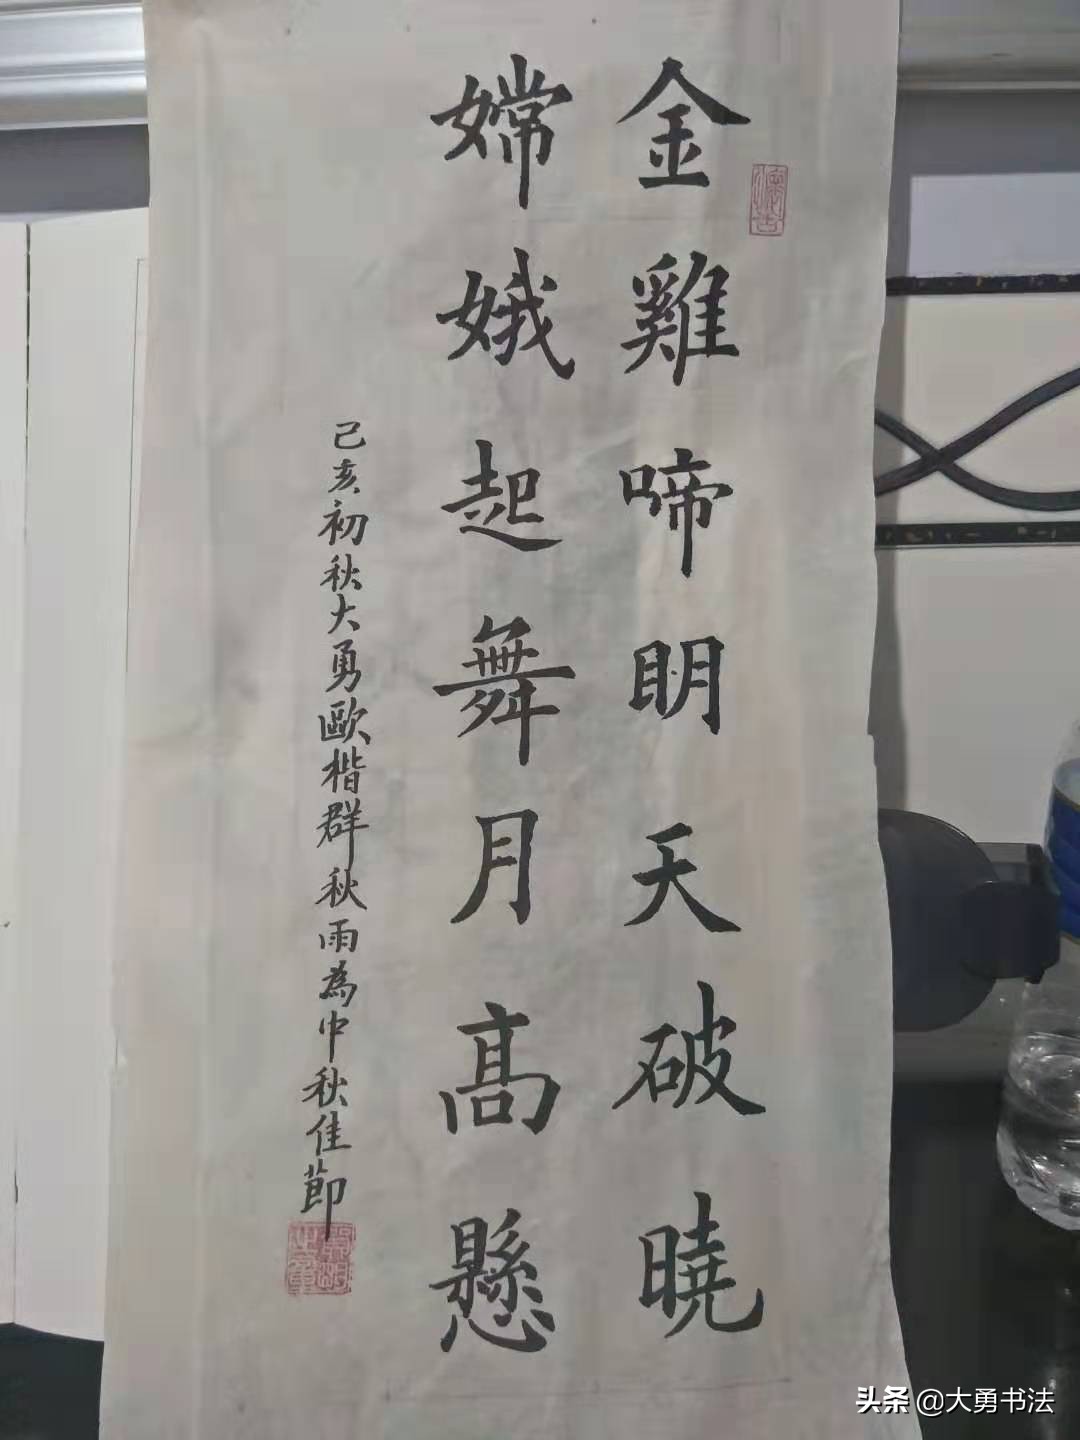 金雞啼明天破曉
嫦娥起舞月高懸
己亥初秋大勇歐楷群秋雨為中秋佳節
头条 @大勇书法